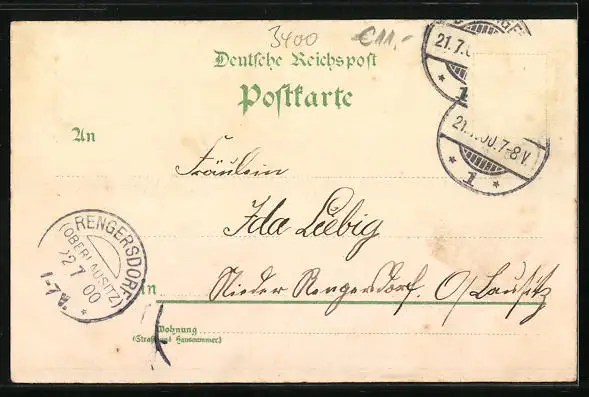 3400 €11,-
Deutsche Reichspost
Postkarte
21.7.
1
21. .00.7-8V.
1
An
Fräulein
Ida Liebig
in Nieder Rengersdorf. O/Lausitz
Wohnung
(Straße und Hausnummer)
RENGERSDORF
(OBERLAUSITZ)
22 7 00
1-7